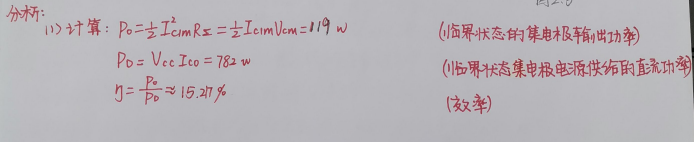 分析:
(1) 计算: Po=½I²c1mRΣ=½Ic1mVcm=119 w (临界状态的集电极输出功率)
PD=VccIco=782 w (临界状态集电极电源供给的直流功率)
η=Po/PD≈15.27% (效率)